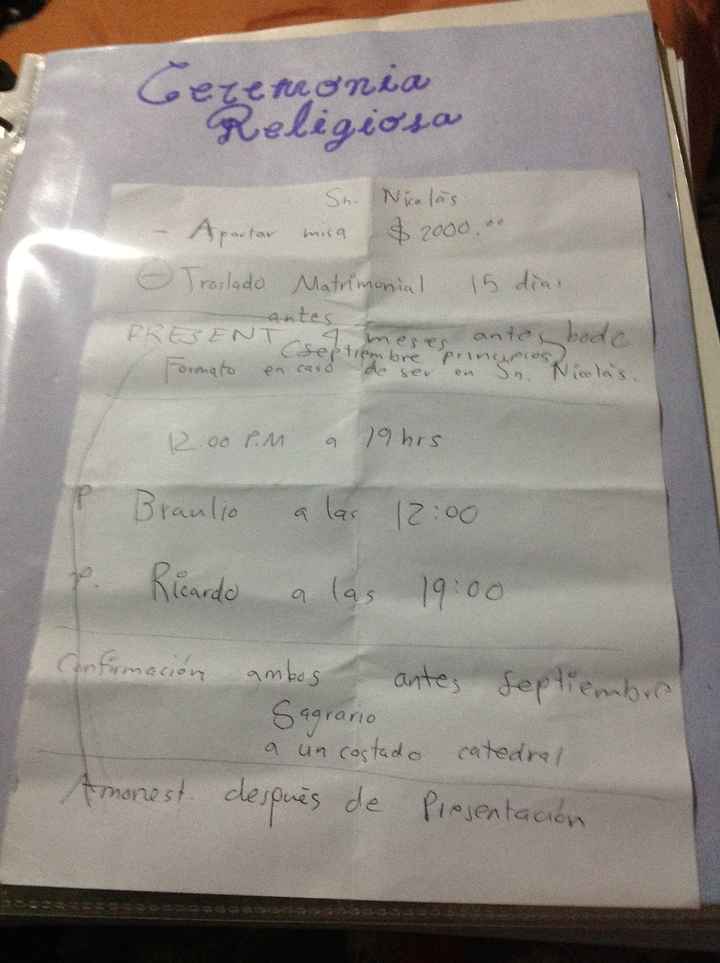 Ceremonia
Religiosa
Sn. Nicolás
- Apartar misa $2000.00
- Traslado Matrimonial 15 dias
antes
PRESENT 4 meses antes boda
(septiembre principios)
Formato en caso de ser en Sn. Nicolás.
12.00 P.M a 19 hrs
P Braulio a las 12:00
P. Ricardo a las 19:00
Confirmación ambos antes septiembre
Sagrario
a un costado catedral
Amonest. después de Presentación